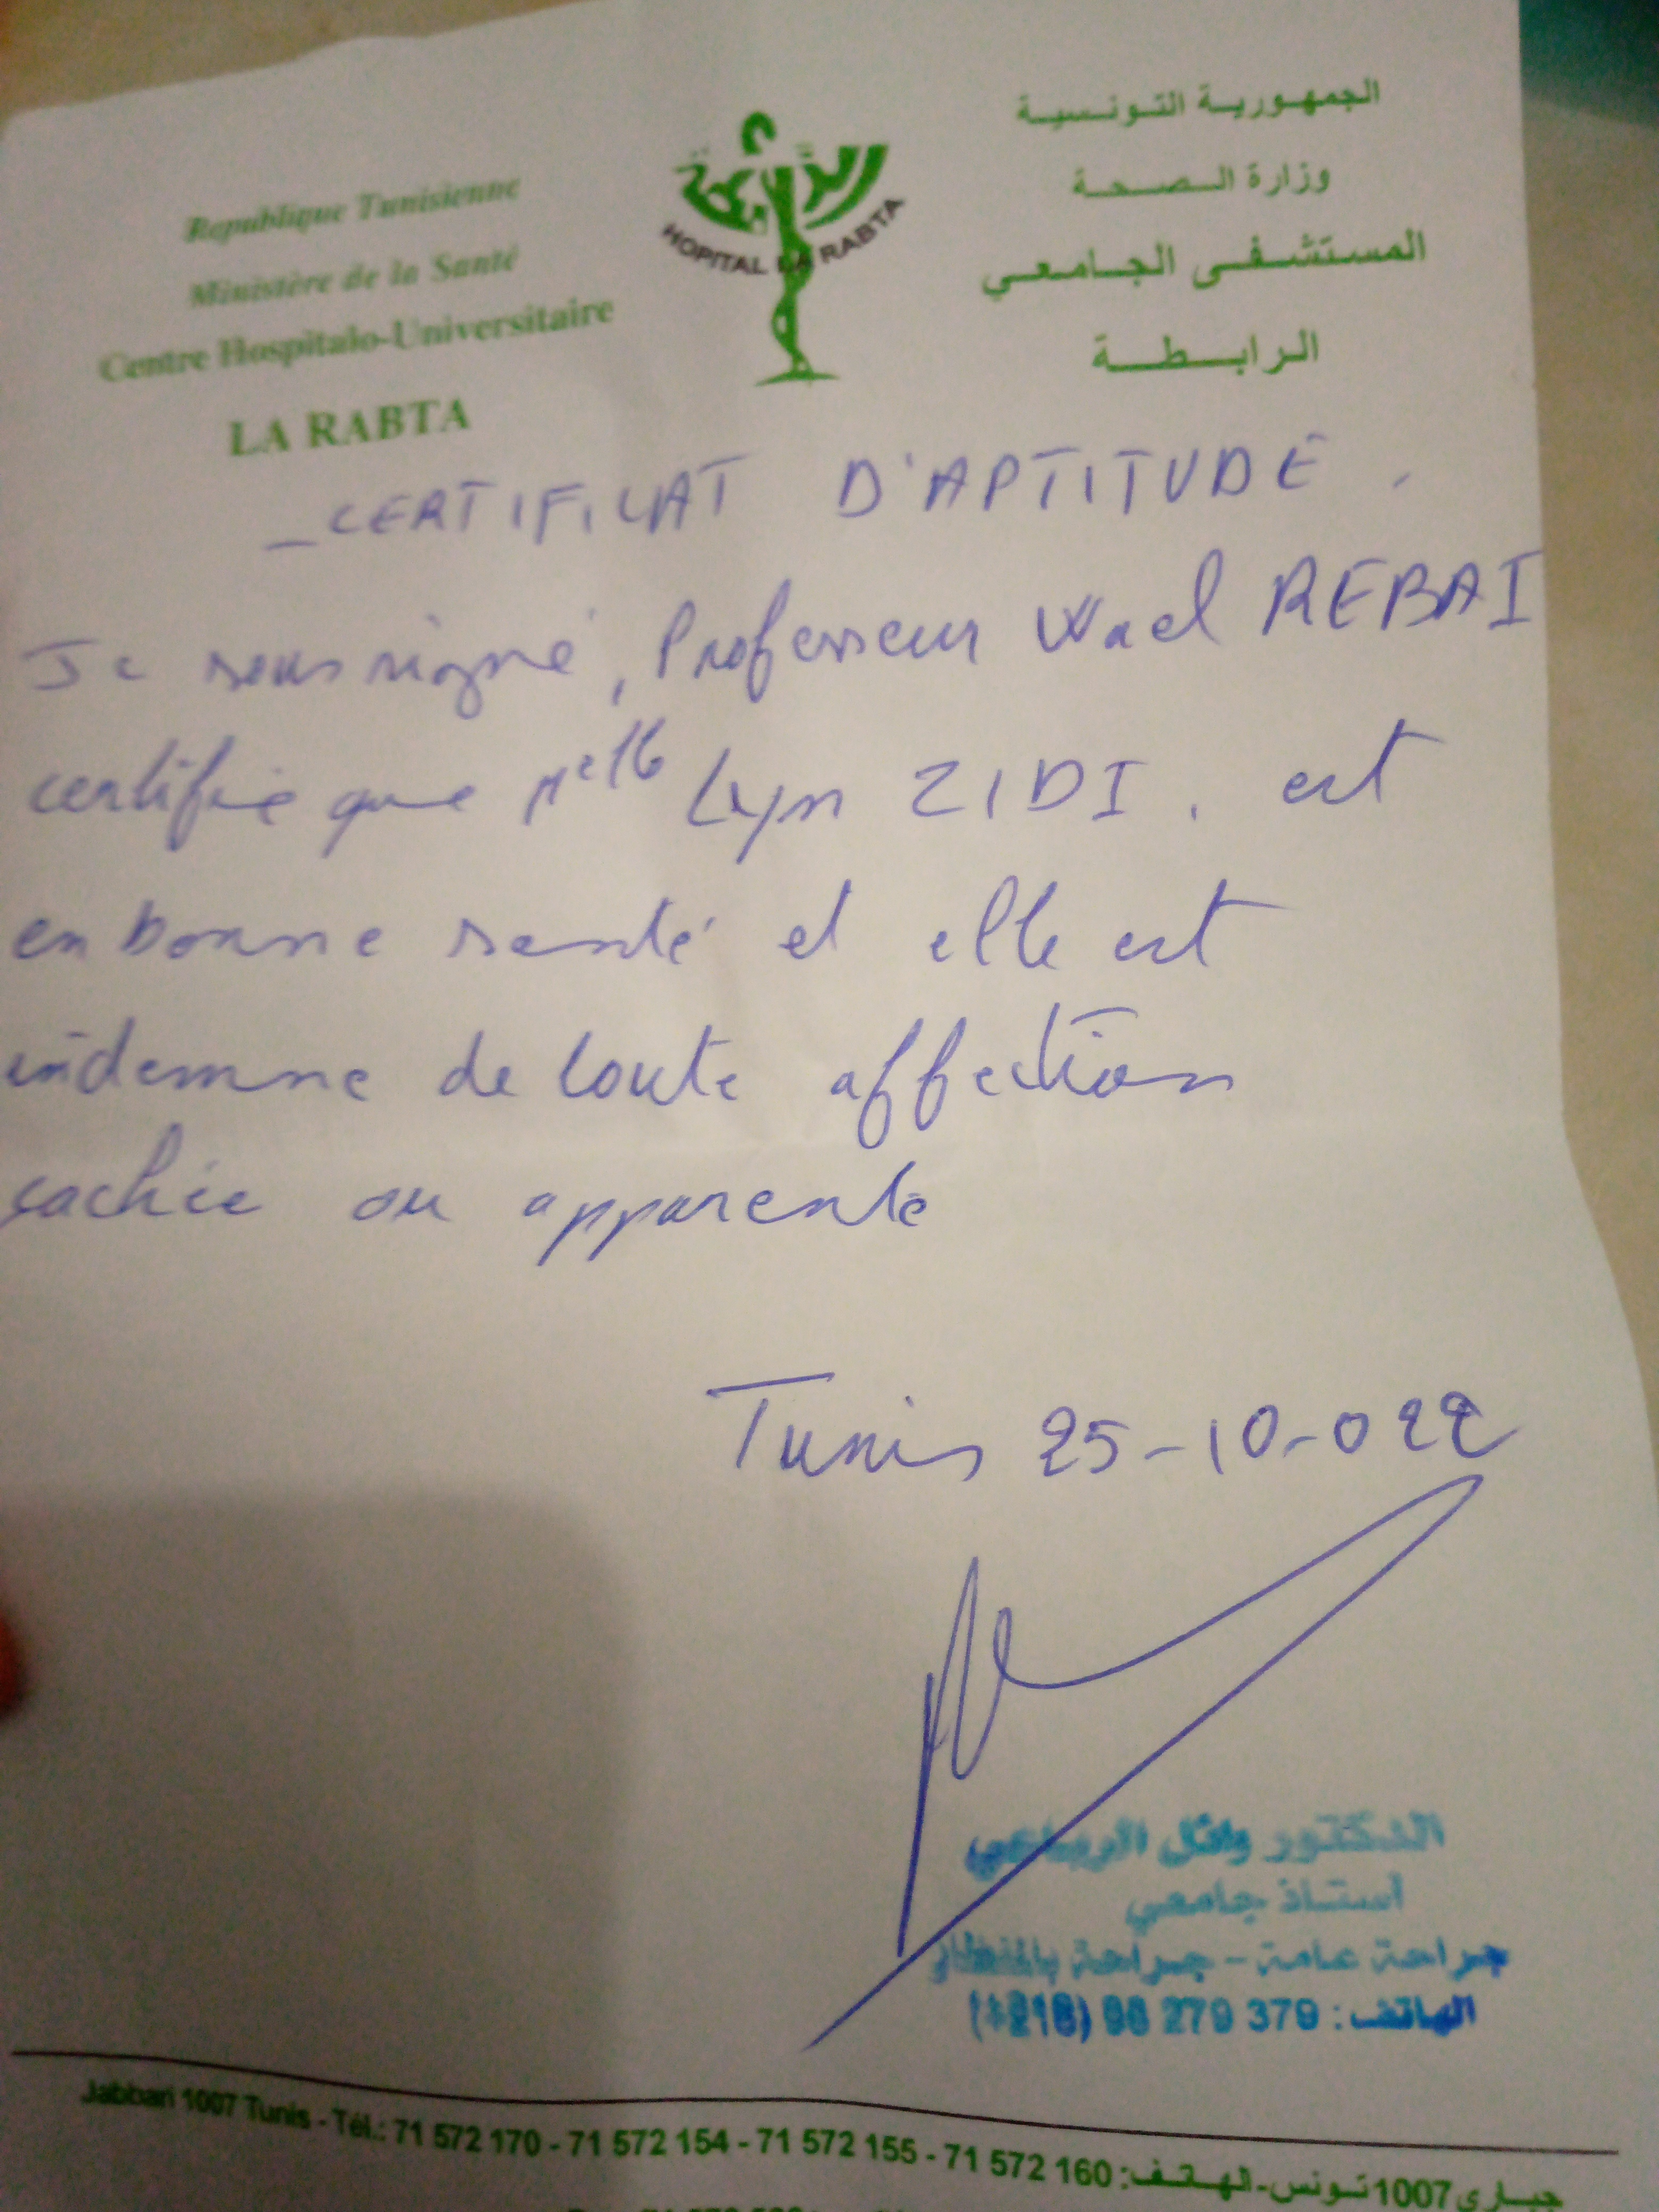 Republique Tunisienne
Ministère de la Santé
Centre Hospitalo-Universitaire
LA RABTA
الرابطة
HOPITAL LA RABTA
الجمهورية التونسية
وزارة الصحة
المستشفى الجامعي
الرابطة
_CERTIFICAT D'APTITUDE.
Je soussigné, Professeur Wael REBAI
certifie que Melle Lyn ZIDI. est
en bonne santé et elle est
indemne de toute affection
cachée ou apparente
Tunis 25-10-022
الدكتور وائل الرباعي
أستاذ جامعي
جراحة عامة - جراحة بالمنظار
الهاتف : 379 279 98 (+216)
Jabbari 1007 Tunis - Tél.: 71 572 170 - 71 572 154 - 71 572 155 - 71 572 160 :جباري 1007 تونس-الهاتف